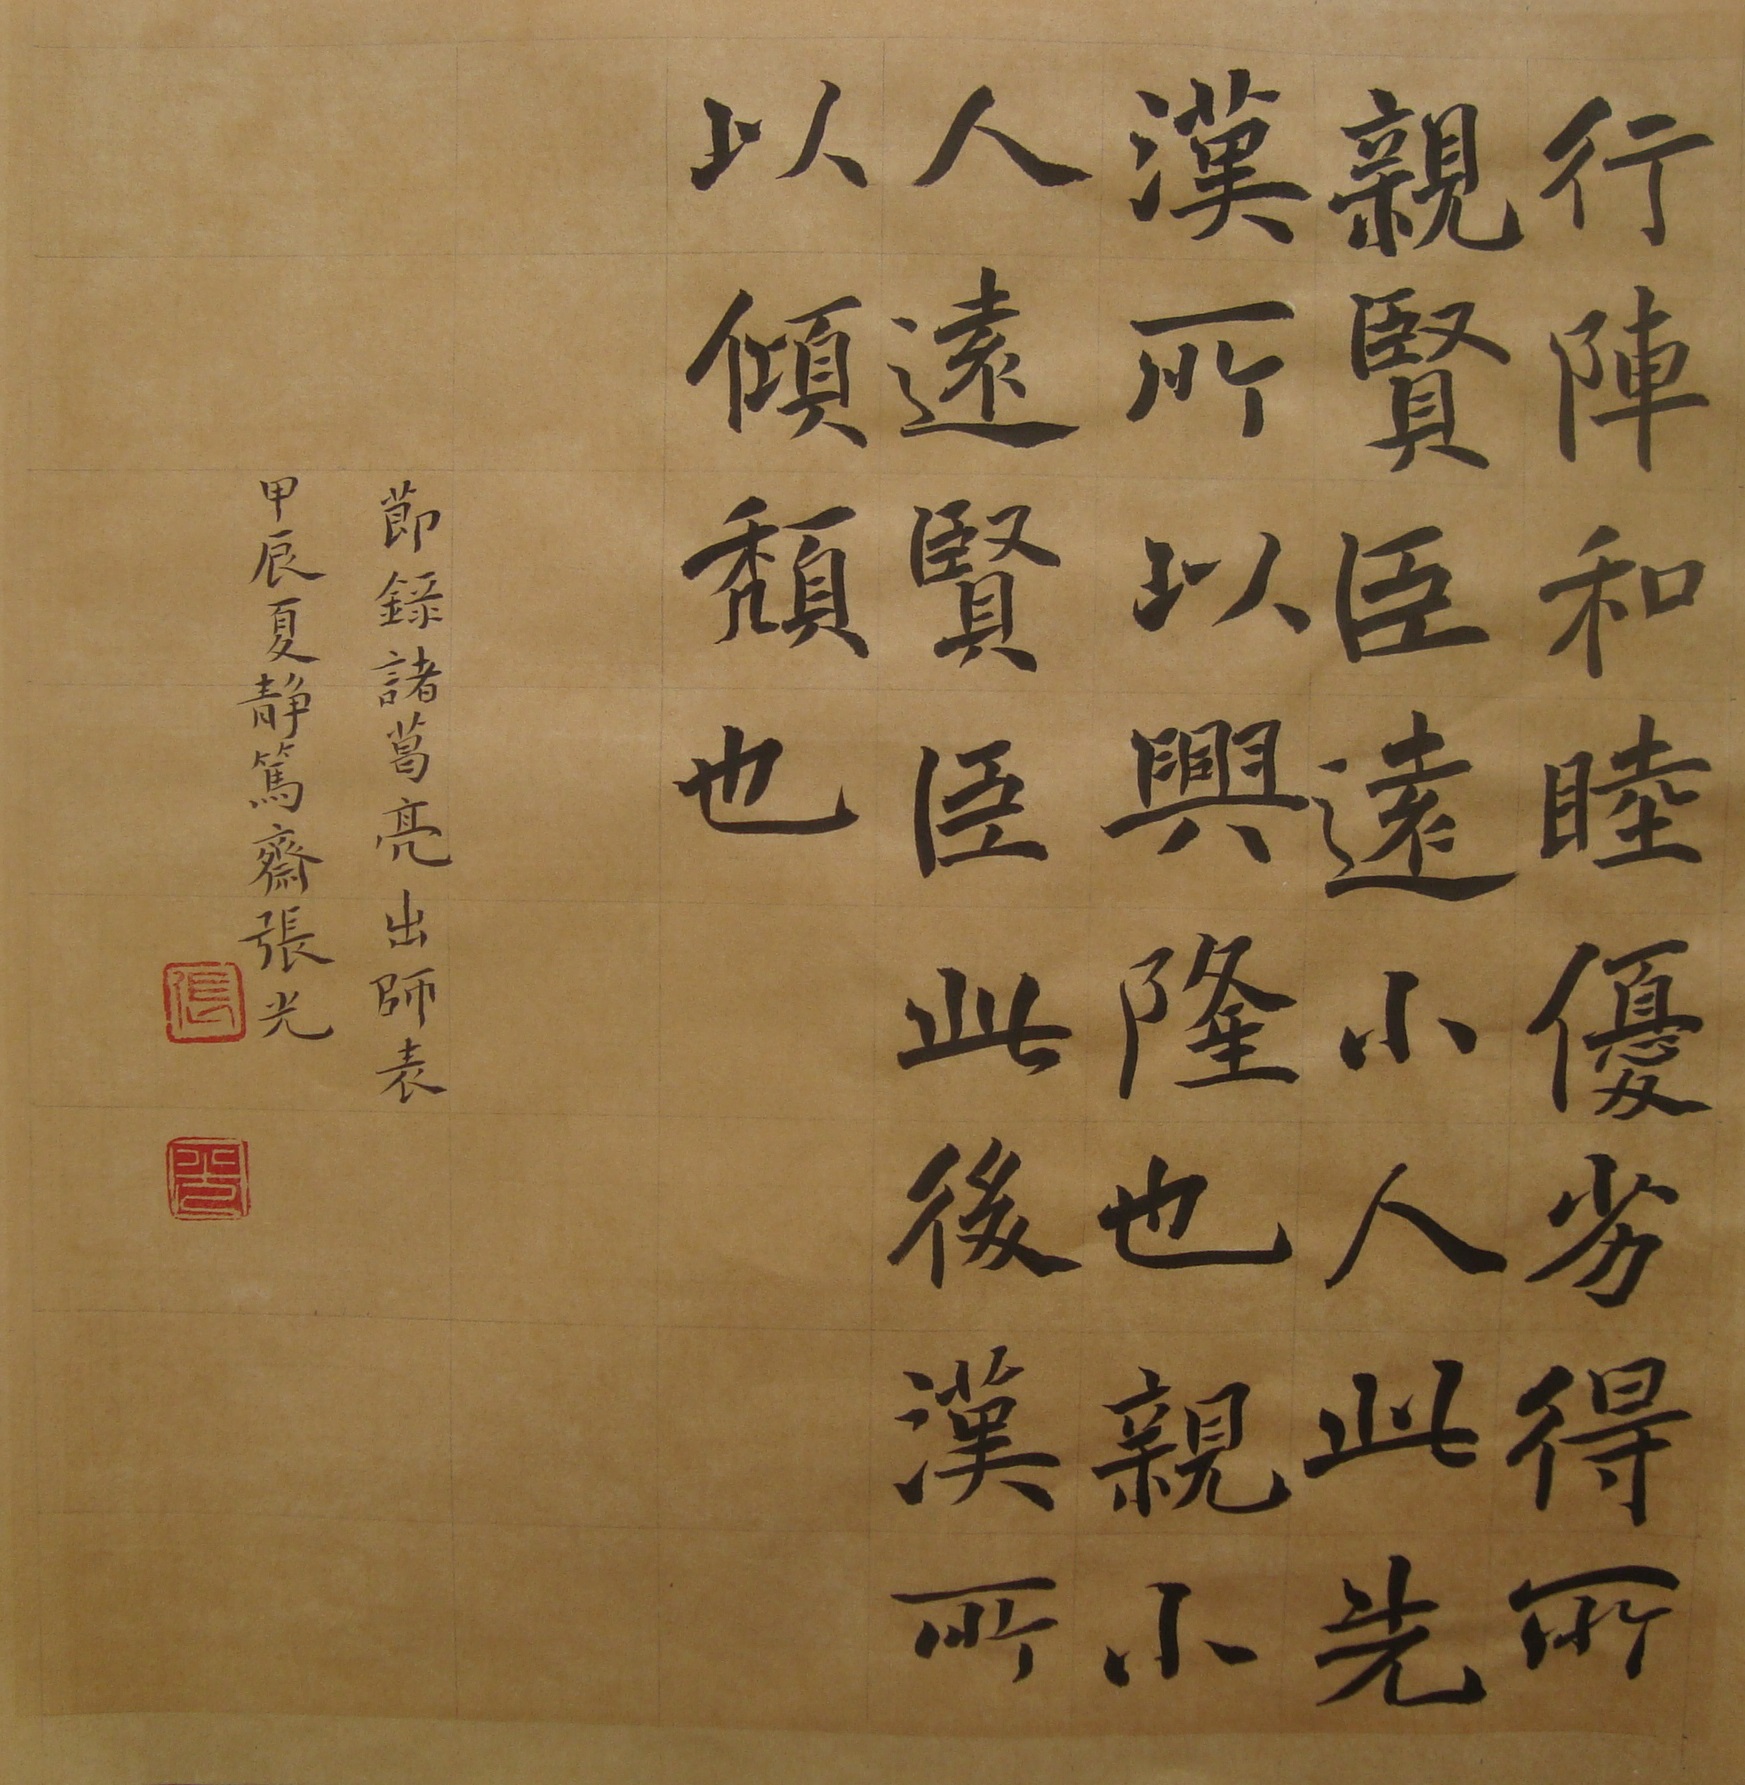 行陣和睦優劣得所
親賢臣遠小人此先
漢所以興隆也親小
人遠賢臣此後漢所
以傾頹也
節錄諸葛亮出師表
甲辰夏靜篤齋張光
張
光